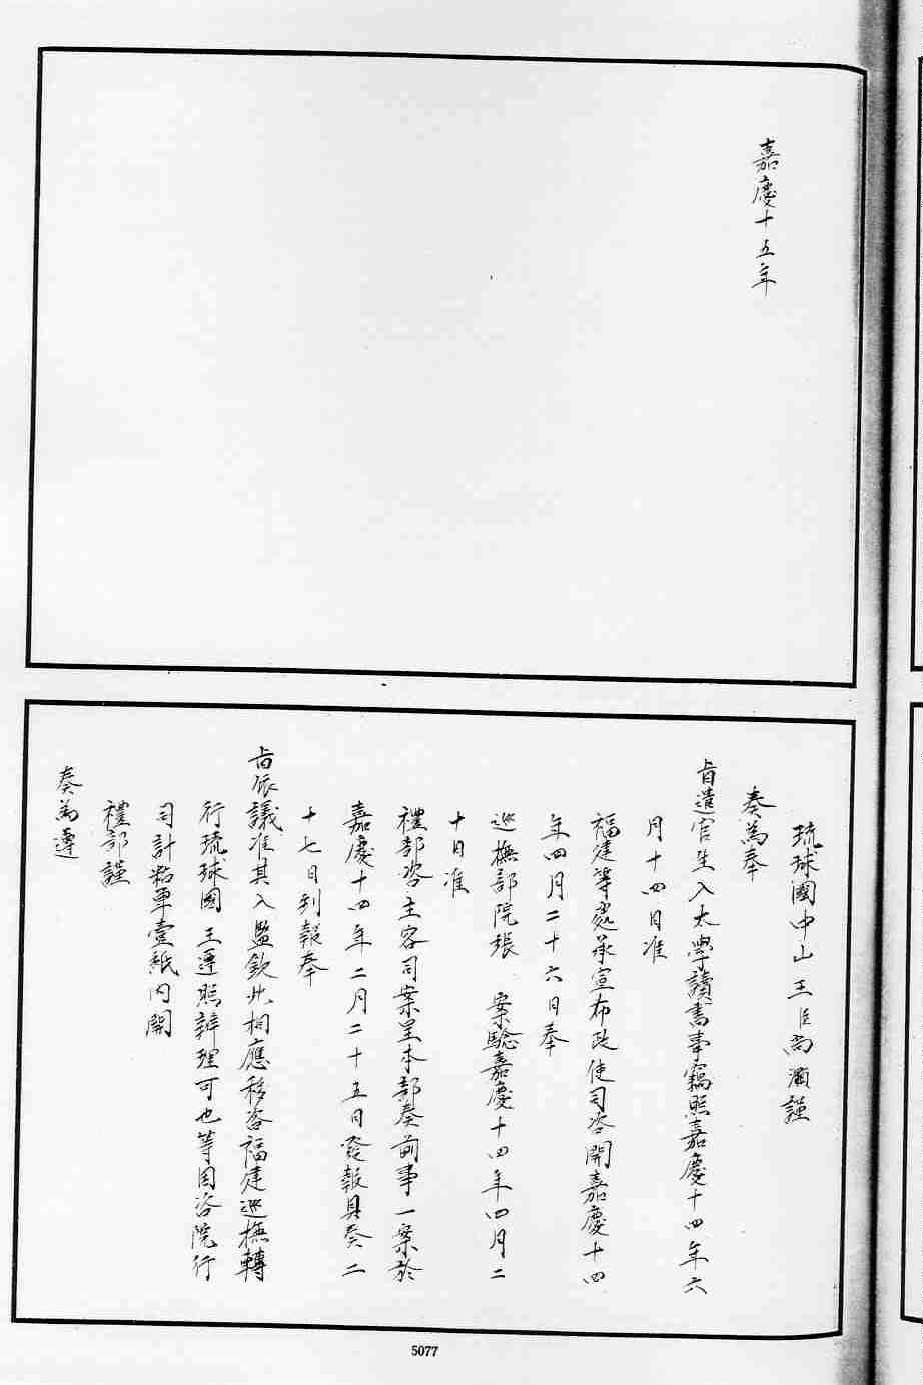 嘉慶十五年
琉球國中山王臣尚灝謹
奏為奉
旨遣官生入太學讀書事竊照嘉慶十四年六
月十四日准
福建等處承宣布政使司咨開嘉慶十四
年四月二十六日奉
巡撫部院張　案驗嘉慶十四年四月二
十日准
禮部咨主客司案呈本部奏前事一案於
嘉慶十四年二月二十五日發報具奏二
十七日到報奉
旨依議准其入監欽此相應移咨福建巡撫轉
行琉球國王遵照辦理可也等因咨院行
司計粘單壹紙內開
禮部謹
奏為遵
5077